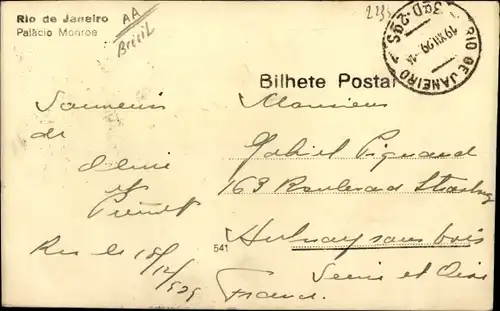 Rio de Janeiro
Palácio Monroe
AA
Brésil
RIO DE JANEIRO
19.XII.29
Bilhete Postal
Souvenir
de
et
Rio le 18/12/929
541
Monsieur
Gabriel Pignand
163 Boulevard Strasbourg
Aulnay sous bois
Seine et Oise
France.